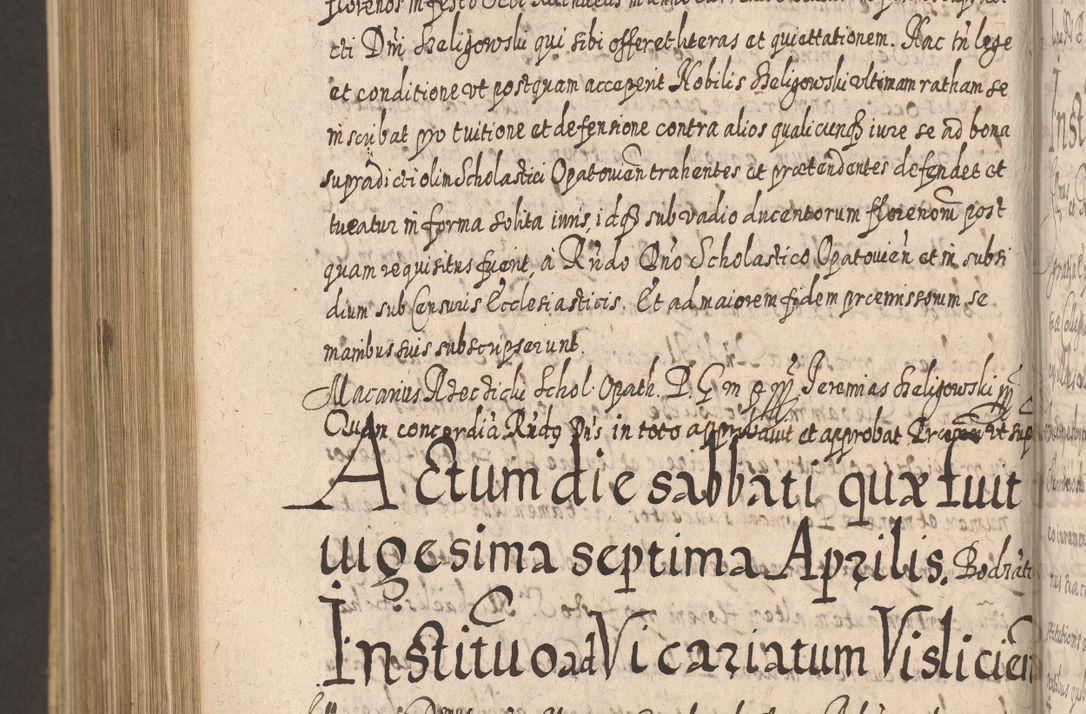 cti Dni Heligowski qui sibi offeret literas et quiettationem. Hac tn lege
et conditione vt postquam acceperit Nobilis Heligowski vltimam ratham se
inscribat pro tuitione et defensione contra alios qualicunqȝ iure se ad bona
supradicti olim Scholastici Opatouien trahentes et prætendentes defendet et
tueatur in forma solita iuris, idqȝ sub vadio ducentorum fflorenorū post
quam requisitus fuerit, à Rndo Dno Scholastico Opatouien et in subsi
dium sub Censuris Ecclesiasticis. Et ad maiorem fidem præmissorum se
manibus suis subscripserunt.
Macarius Schol. Opath. Jeremias Heligowski
Quam concordiā Rndꝫ Dns in toto approbauit et approbat vt sup
Actum die sabbati quæ fuit
uigesima septima Aprilis. Bodzāt
Institutio ad Vicariatum Vislicien